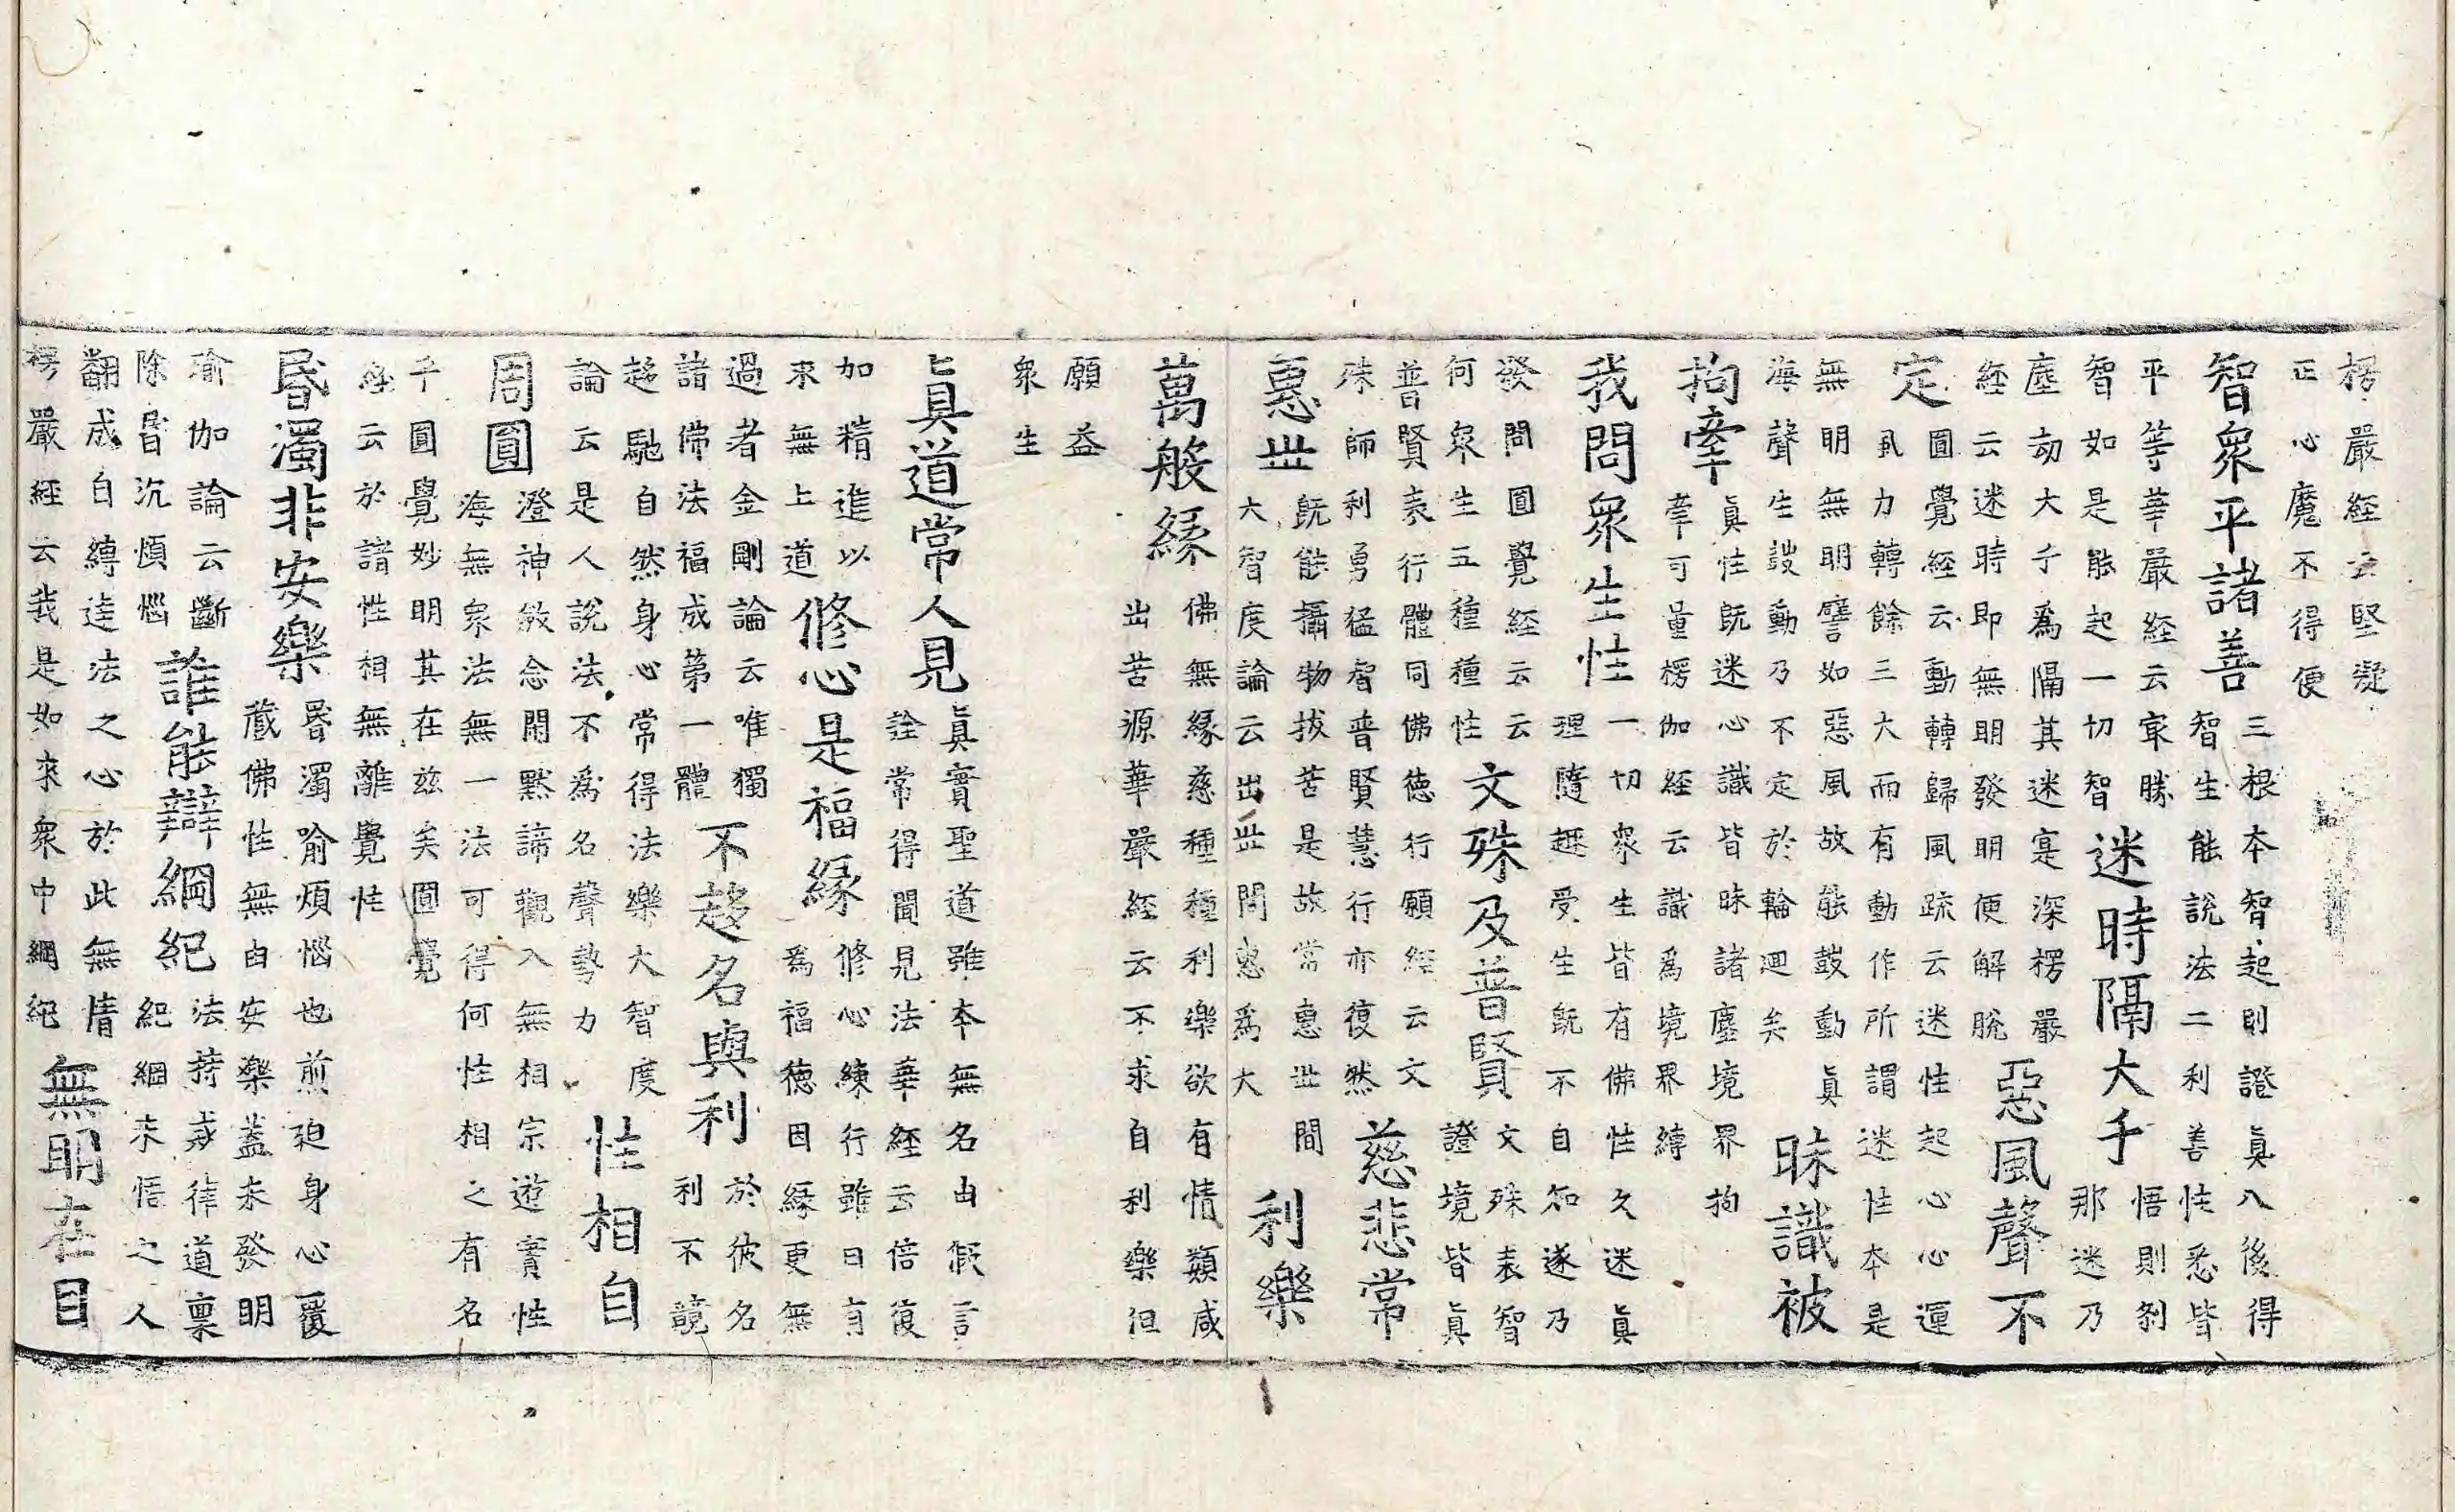 楞嚴經云堅凝
正心魔不得便
智衆平諸善
三根本智起則證眞八後得
智生能說法二利善性悉皆
平等華嚴經云㝡勝
智如是能起一切智
迷時隔大千
悟則刹
那迷乃
塵劫大千為隔其迷寔深楞嚴
經云迷時即無明發明便解脫
惡風聲不
定
圓覺經云動轉歸風疏云迷性起心心運
風力轉餘三大而有動作所謂迷性本是
無明無明譬如惡風故能鼓動眞
海聲生鼓動乃不定於輪迴矣
昧識被
拘牽
眞性旣迷心識皆昧諸塵境界拘
牽可量楞伽經云識為境界縛
我問衆生性
一切衆生皆有佛性久迷眞
理隨趣受生旣不自知遂乃
發問圓覺經云云
何衆生五種種性
文殊及普賢
文殊表智
證境皆眞
普賢表行體同佛德行願經云文
殊師利勇猛智普賢慧行亦復然
慈悲常
惠世
旣能攝物拔苦是故常惠世間
大智度論云出世間惠為大
利樂
萬般緣
佛無緣慈種種利樂欲有情類咸
出苦源華嚴經云不求自利樂但
願益
衆生
眞道常人見
眞實聖道雖本無名由假言
詮常得聞見法華經云倍復
加精進以
求無上道
修心是福緣
修心練行雖曰有
為福德因緣更無
過者金剛論云唯獨
諸佛法福成第一體
不趍名與利
於彼名
利不競
趍馳自然身心常得法樂大智度
論云是人說法不為名聲勢力
性相自
周圓
澄神斂念閒默諦觀入無相宗遊實性
海無衆法無一法可得何性相之有名
千圓覺妙明其在茲矣圓覺
經云於諸性相無離覺性
昏濁非安樂
昏濁喻煩惱也煎迫身心覆
藏佛性無由安樂蓋未發明
瑜伽論云斷
除昏沉煩惱
誰能辯綱紀
法持戒律道禀
紀綱未悟之人
翻成自縛達法之心於此無情
楞嚴經云我是如來衆中綱紀
無明在目